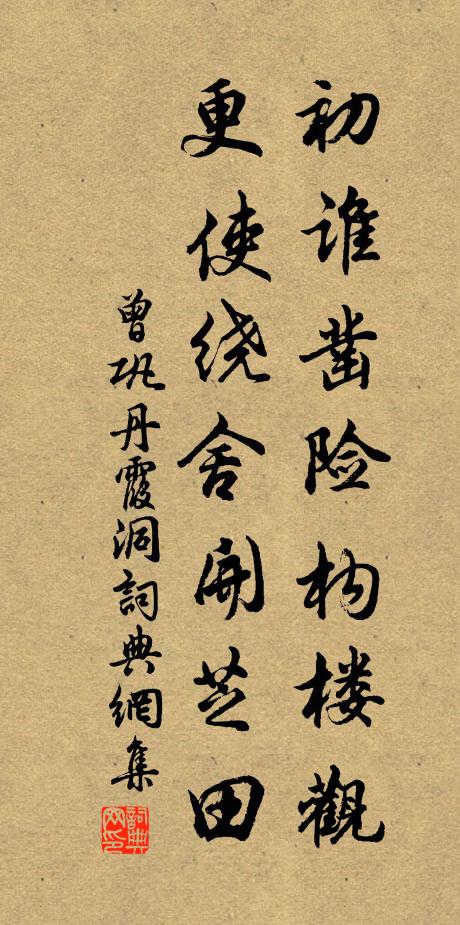 初谁凿险构楼觀
更使绕舍開芝田
曾巩丹霞洞詞典網集
詞典網印